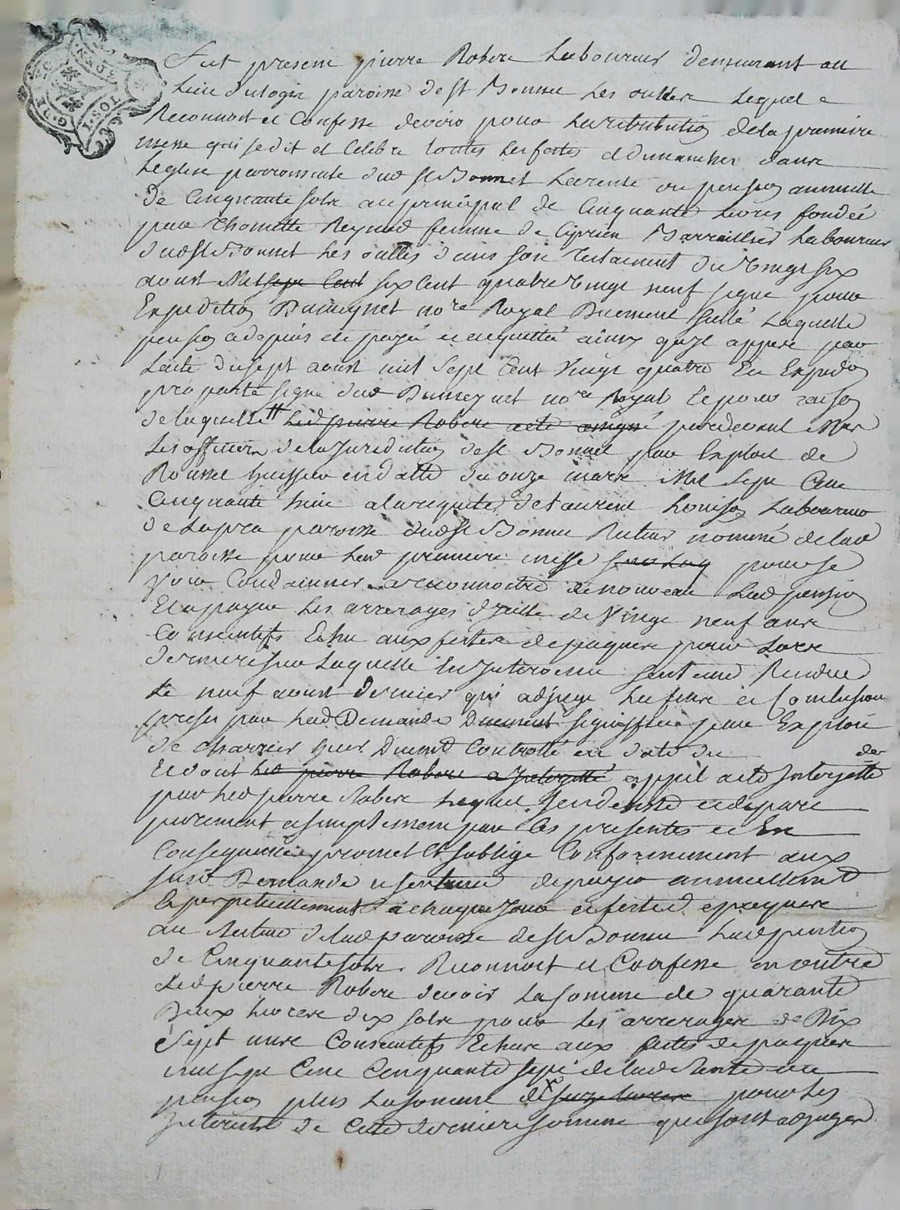 Fut present pierre Robert Laboureur demeurant au
Lieu paroisse de st Bonnet Les oulles Lequel a
Reconnoit et Confesse devoir pour La retribution de la premiere
messe qui se dit et Celebre toutes Les fetes et dimanches dans
Leglise parroissiale dud st Bonnet La rente ou pension annuelle
De Cinquante sols au principal de Cinquante Livres fondée
par Thomette Reynud femme de Ciprien Barraillier Laboureur
dud st Bonnet Les oulles dans son Testament du vingt six
aoust Mil sept Cent six Cent quatre vingt neuf signe pour
Expedition no.re Royal Duement Sellé Laquelle
pension a depuis ete payée et acquittée ainsy quil appert par
Lacte du sept aoust mil sept Cent vingt quatre En Expedon
signe dud no.re Royal Et pour raison
de laquelle Led pierre Robert acte assigné pardevant
Les officiers de la Juridiction de st Bonnet par Exploit de
huissier en datte du onze mars Mil sept Cent
Cinquante huit a La requete de Laurent Louison Laboureur
de Lapra paroisse dud st Bonnet nommé de lad
paroisse pour Lad premiere messe pour se
voir Condamner a reconnoitre de nouveau Lad pension
Et a payer Les arrerages dicelle de Vingt neuf ans
Consecutifs Echu aux fetes de paques pour Lors
derniere sur Laquelle Est Intervenu sentence Rendue
Le neuf aoust dernier qui adjuge Les fins et Conclusions
prises par Lad Demande Duement signiffiée par Exploit
de Charrier huis Duemt Controllé en date du
Et dont Led pierre Robert a Interjetté appel a ete Interjetté
par Led pierre Robert Lequel sen desiste et depart
purement et simplement par Ces presentes et En
Consequence promet Et soblige Conformement aux
susd Demande et sentence de payer annuellement
Et perpetuellement a Chaque Jour et fete de paques
au de lad paroisse de st Bonnet Lad pention
de Cinquante sols. Reconnoit et Confesse en outre
Led pierre Robert devoir La somme de quarante
Deux livres dix sols pour Les arrerages de Dix
Sept ans Consecutifs Echus aux fetes de paques
mil sept Cent Cinquante sept de lad Rente ou
pension plus La somme de pour Les
Interets de Cette derniere somme qui sont adjugés